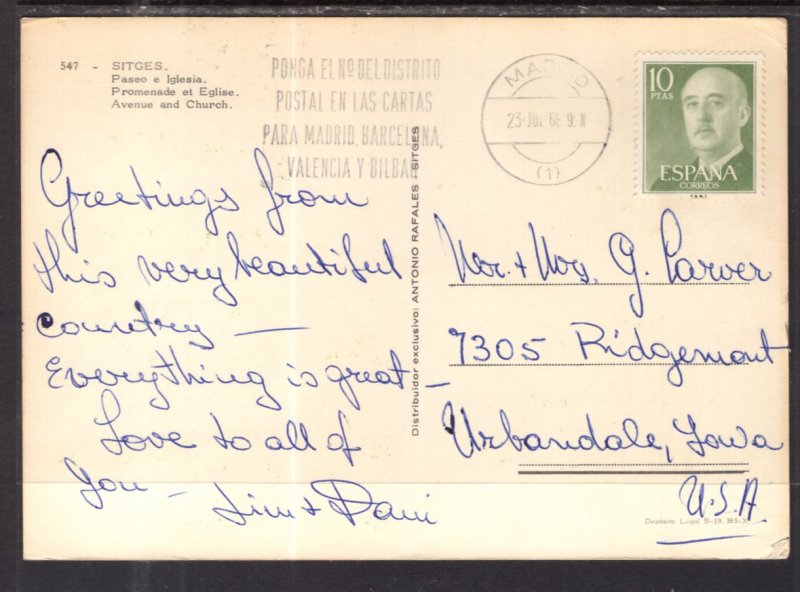 547 - SITGES.
Paseo e Iglesia.
Promenade et Eglise.
Avenue and Church.
PONGA EL Nº DEL DISTRITO
POSTAL EN LAS CARTAS
PARA MADRID, BARCELONA,
VALENCIA Y BILBAO
MADRID
23 JUL 68 9. N
(1)
10
PTAS
ESPAÑA
CORREOS
Greetings from
this very beautiful
country —
Everything is great —
Love to all of
you —
Jim + Dani
Distribuidor exclusivo: ANTONIO RAFALES - SITGES
Mr. + Mrs. G. Carver
7305 Ridgemont
Urbandale, Iowa
U.S.A
Depósito Legal B-19.365-X